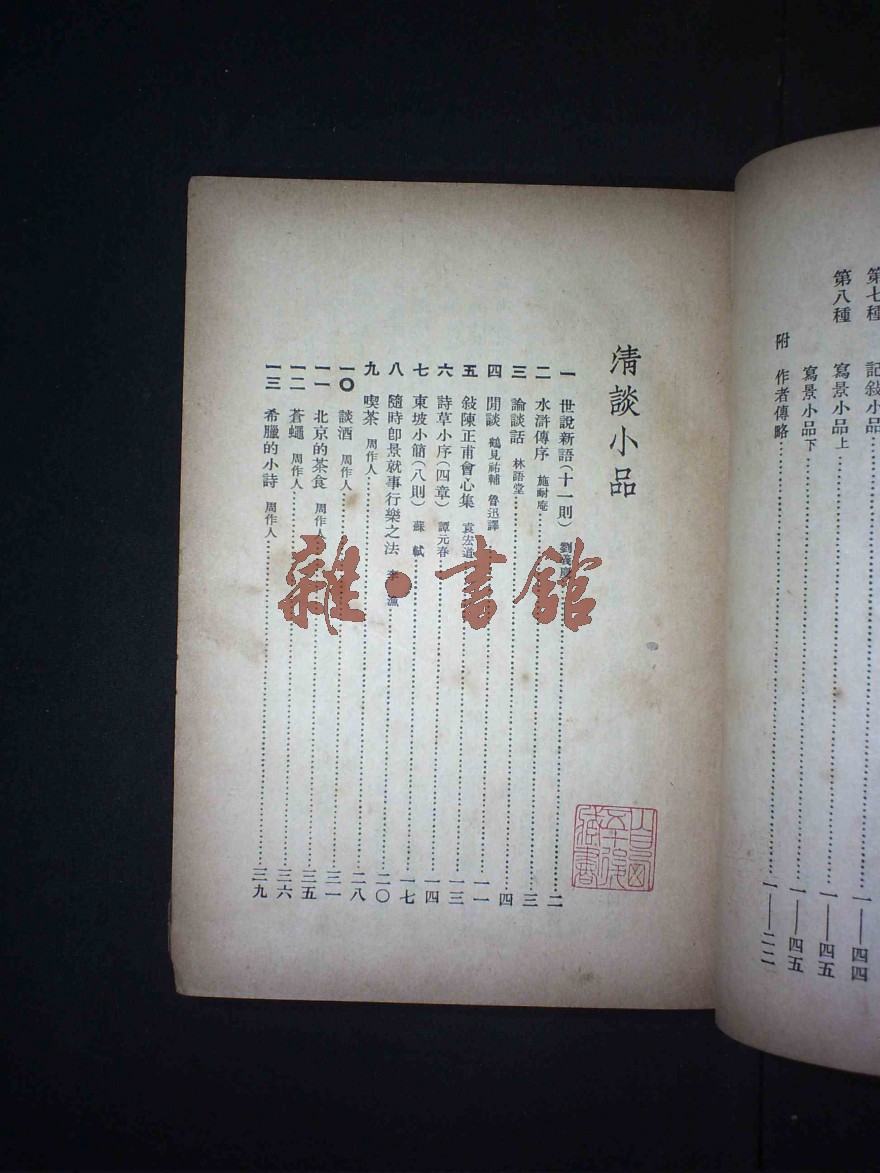 第七種 記敍小品 一——四四
第八種 寫景小品上 一——四五
寫景小品下 一——四五
附 作者傳略 一——二二
淸談小品
一 世說新語(十一則) 劉義慶 二
二 水滸傳序 施耐庵 三
三 論談話 林語堂 四
四 閒談 鶴見祐輔 魯迅譯 一一
五 敍陳正甫會心集 袁宏道 一三
六 詩草小序(四章) 譚元春 一四
七 東坡小簡(八則) 蘇軾 一七
八 隨時卽景就事行樂之法 李漁 二〇
九 喫茶 周作人 二八
一〇 談酒 周作人 三一
一一 北京的茶食 周作人 三五
一二 蒼蠅 周作人 三六
一三 希臘的小詩 周作人 三九
雜·書館